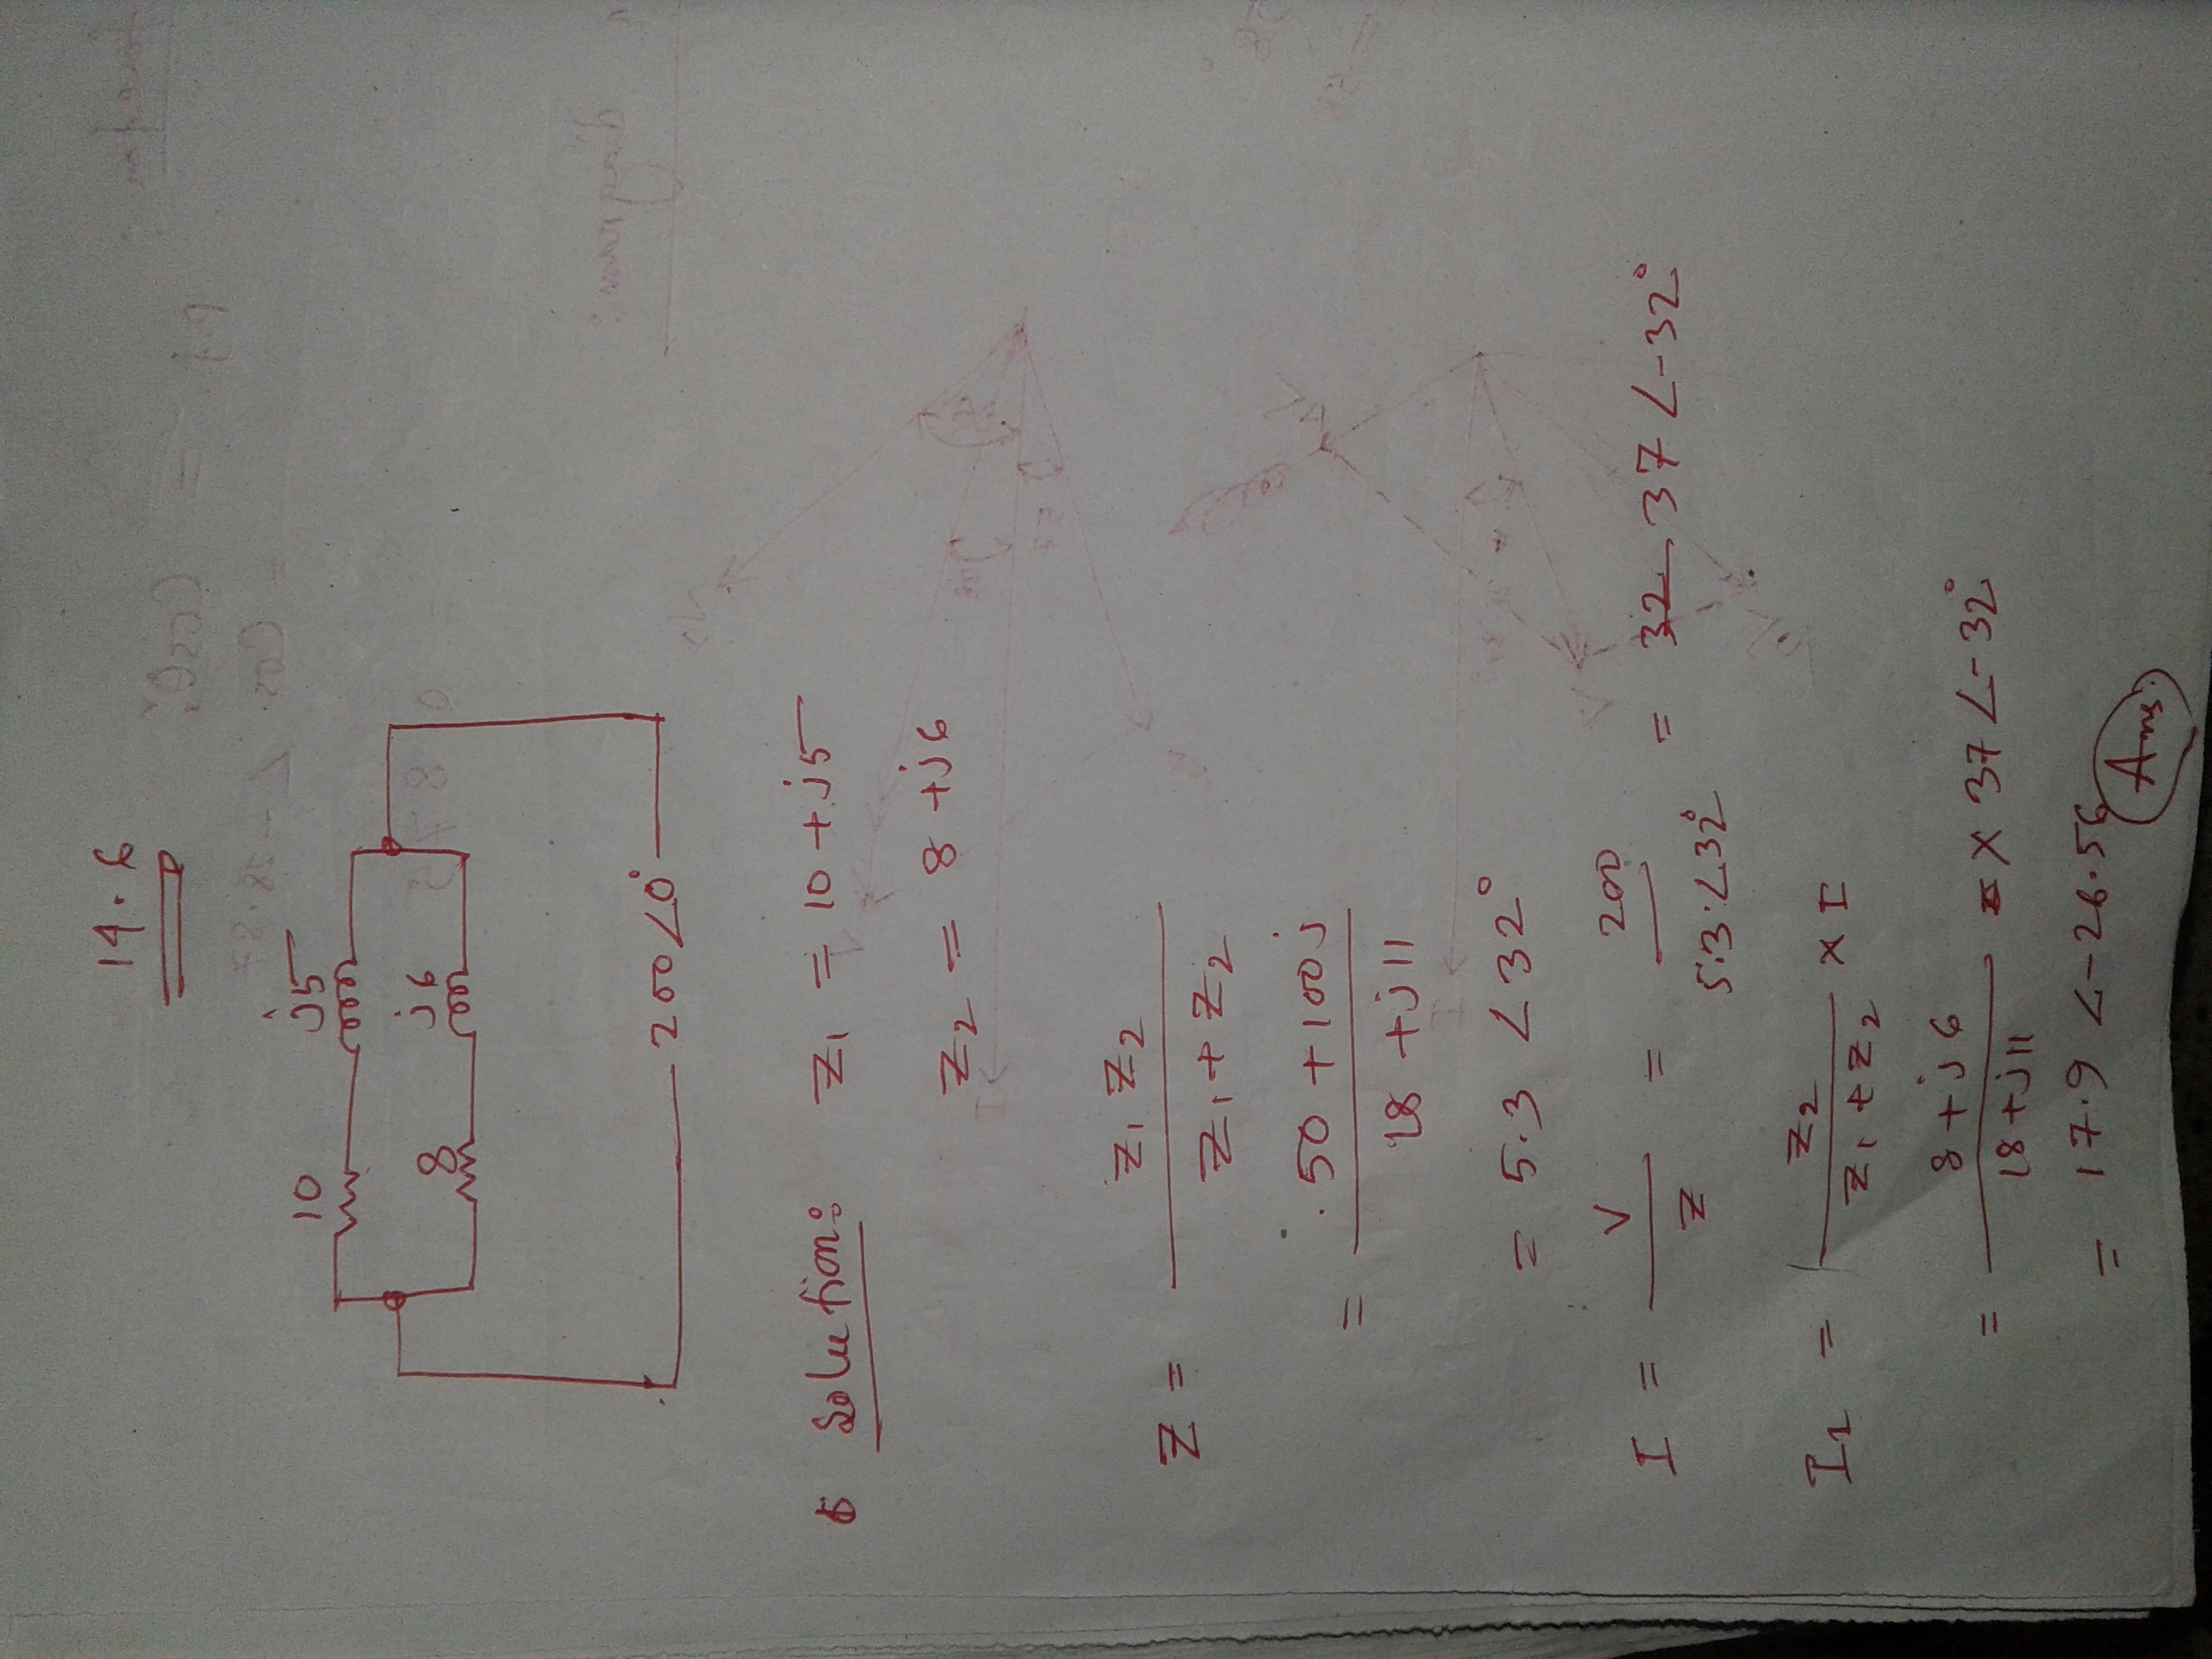 14.6
10 j5
8 j6
200∠0°
Solution: Z1 = 10 + j5
Z2 = 8 + j6
Z = Z1 Z2 / Z1 + Z2
= 50 + 100j / 18 + j11
= 5.3 ∠32°
I = V / Z = 200 / 5.3∠32° = 32 37 ∠-32°
I1 = Z2 / Z1 + Z2 × I
= 8 + j6 / 18 + j11 × 37 ∠-32°
= 17.9 ∠-26.56
Ans: